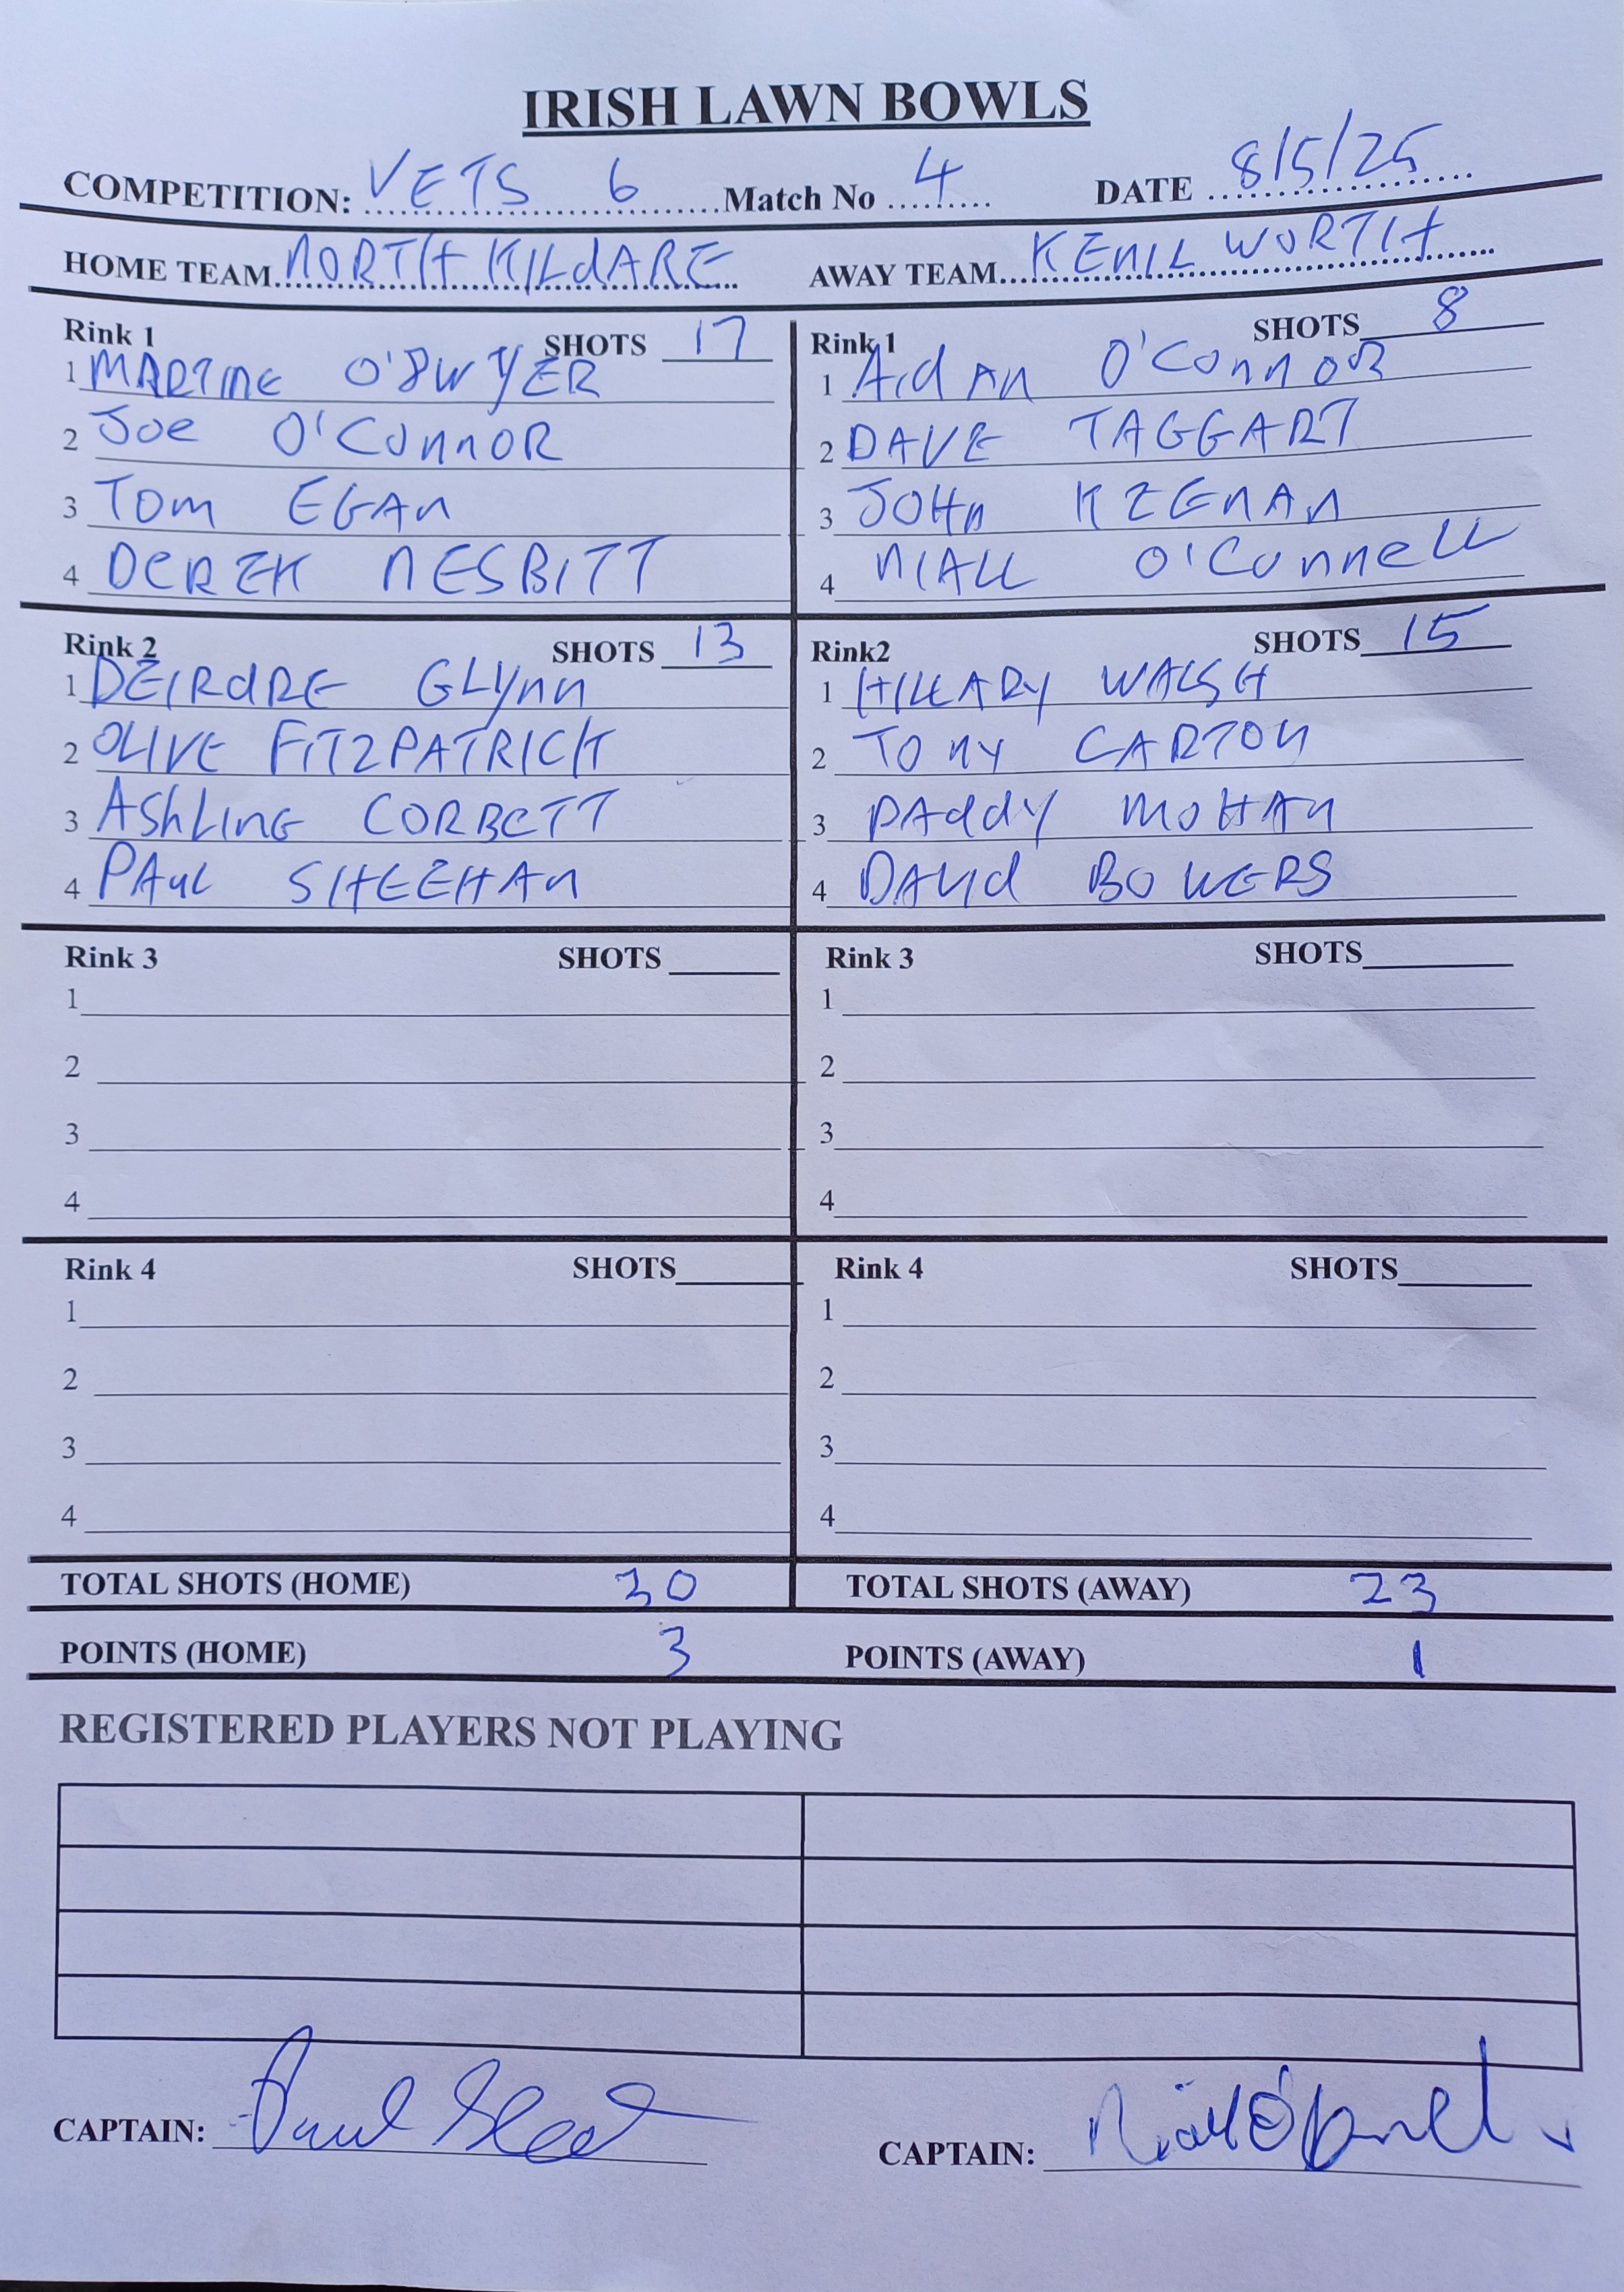 IRISH LAWN BOWLS
COMPETITION: VETS 6 Match No 4 DATE 8/5/25
HOME TEAM NORTH KILDARE AWAY TEAM KENILWORTH
Rink 1 SHOTS 17
1 MARTINE O'DWYER
2 JOE O'CONNOR
3 TOM EGAN
4 DEREK NESBITT
Rink 1 SHOTS 8
1 AIDAN O'CONNOR
2 DAVE TAGGART
3 JOHN KEENAN
4 NIALL O'CONNELL
Rink 2 SHOTS 13
1 DEIRDRE GLYNN
2 OLIVE FITZPATRICK
3 ASHLING CORBETT
4 PAUL SHEEHAN
Rink2 SHOTS 15
1 HILLARY WALSH
2 TONY CARTON
3 PADDY MOHAN
4 DAVID BOWERS
Rink 3 SHOTS
1
2
3
4
Rink 3 SHOTS
1
2
3
4
Rink 4 SHOTS
1
2
3
4
Rink 4 SHOTS
1
2
3
4
TOTAL SHOTS (HOME) 30 TOTAL SHOTS (AWAY) 23
POINTS (HOME) 3 POINTS (AWAY) 1
REGISTERED PLAYERS NOT PLAYING
CAPTAIN: Paul
CAPTAIN: Niall O'Connell